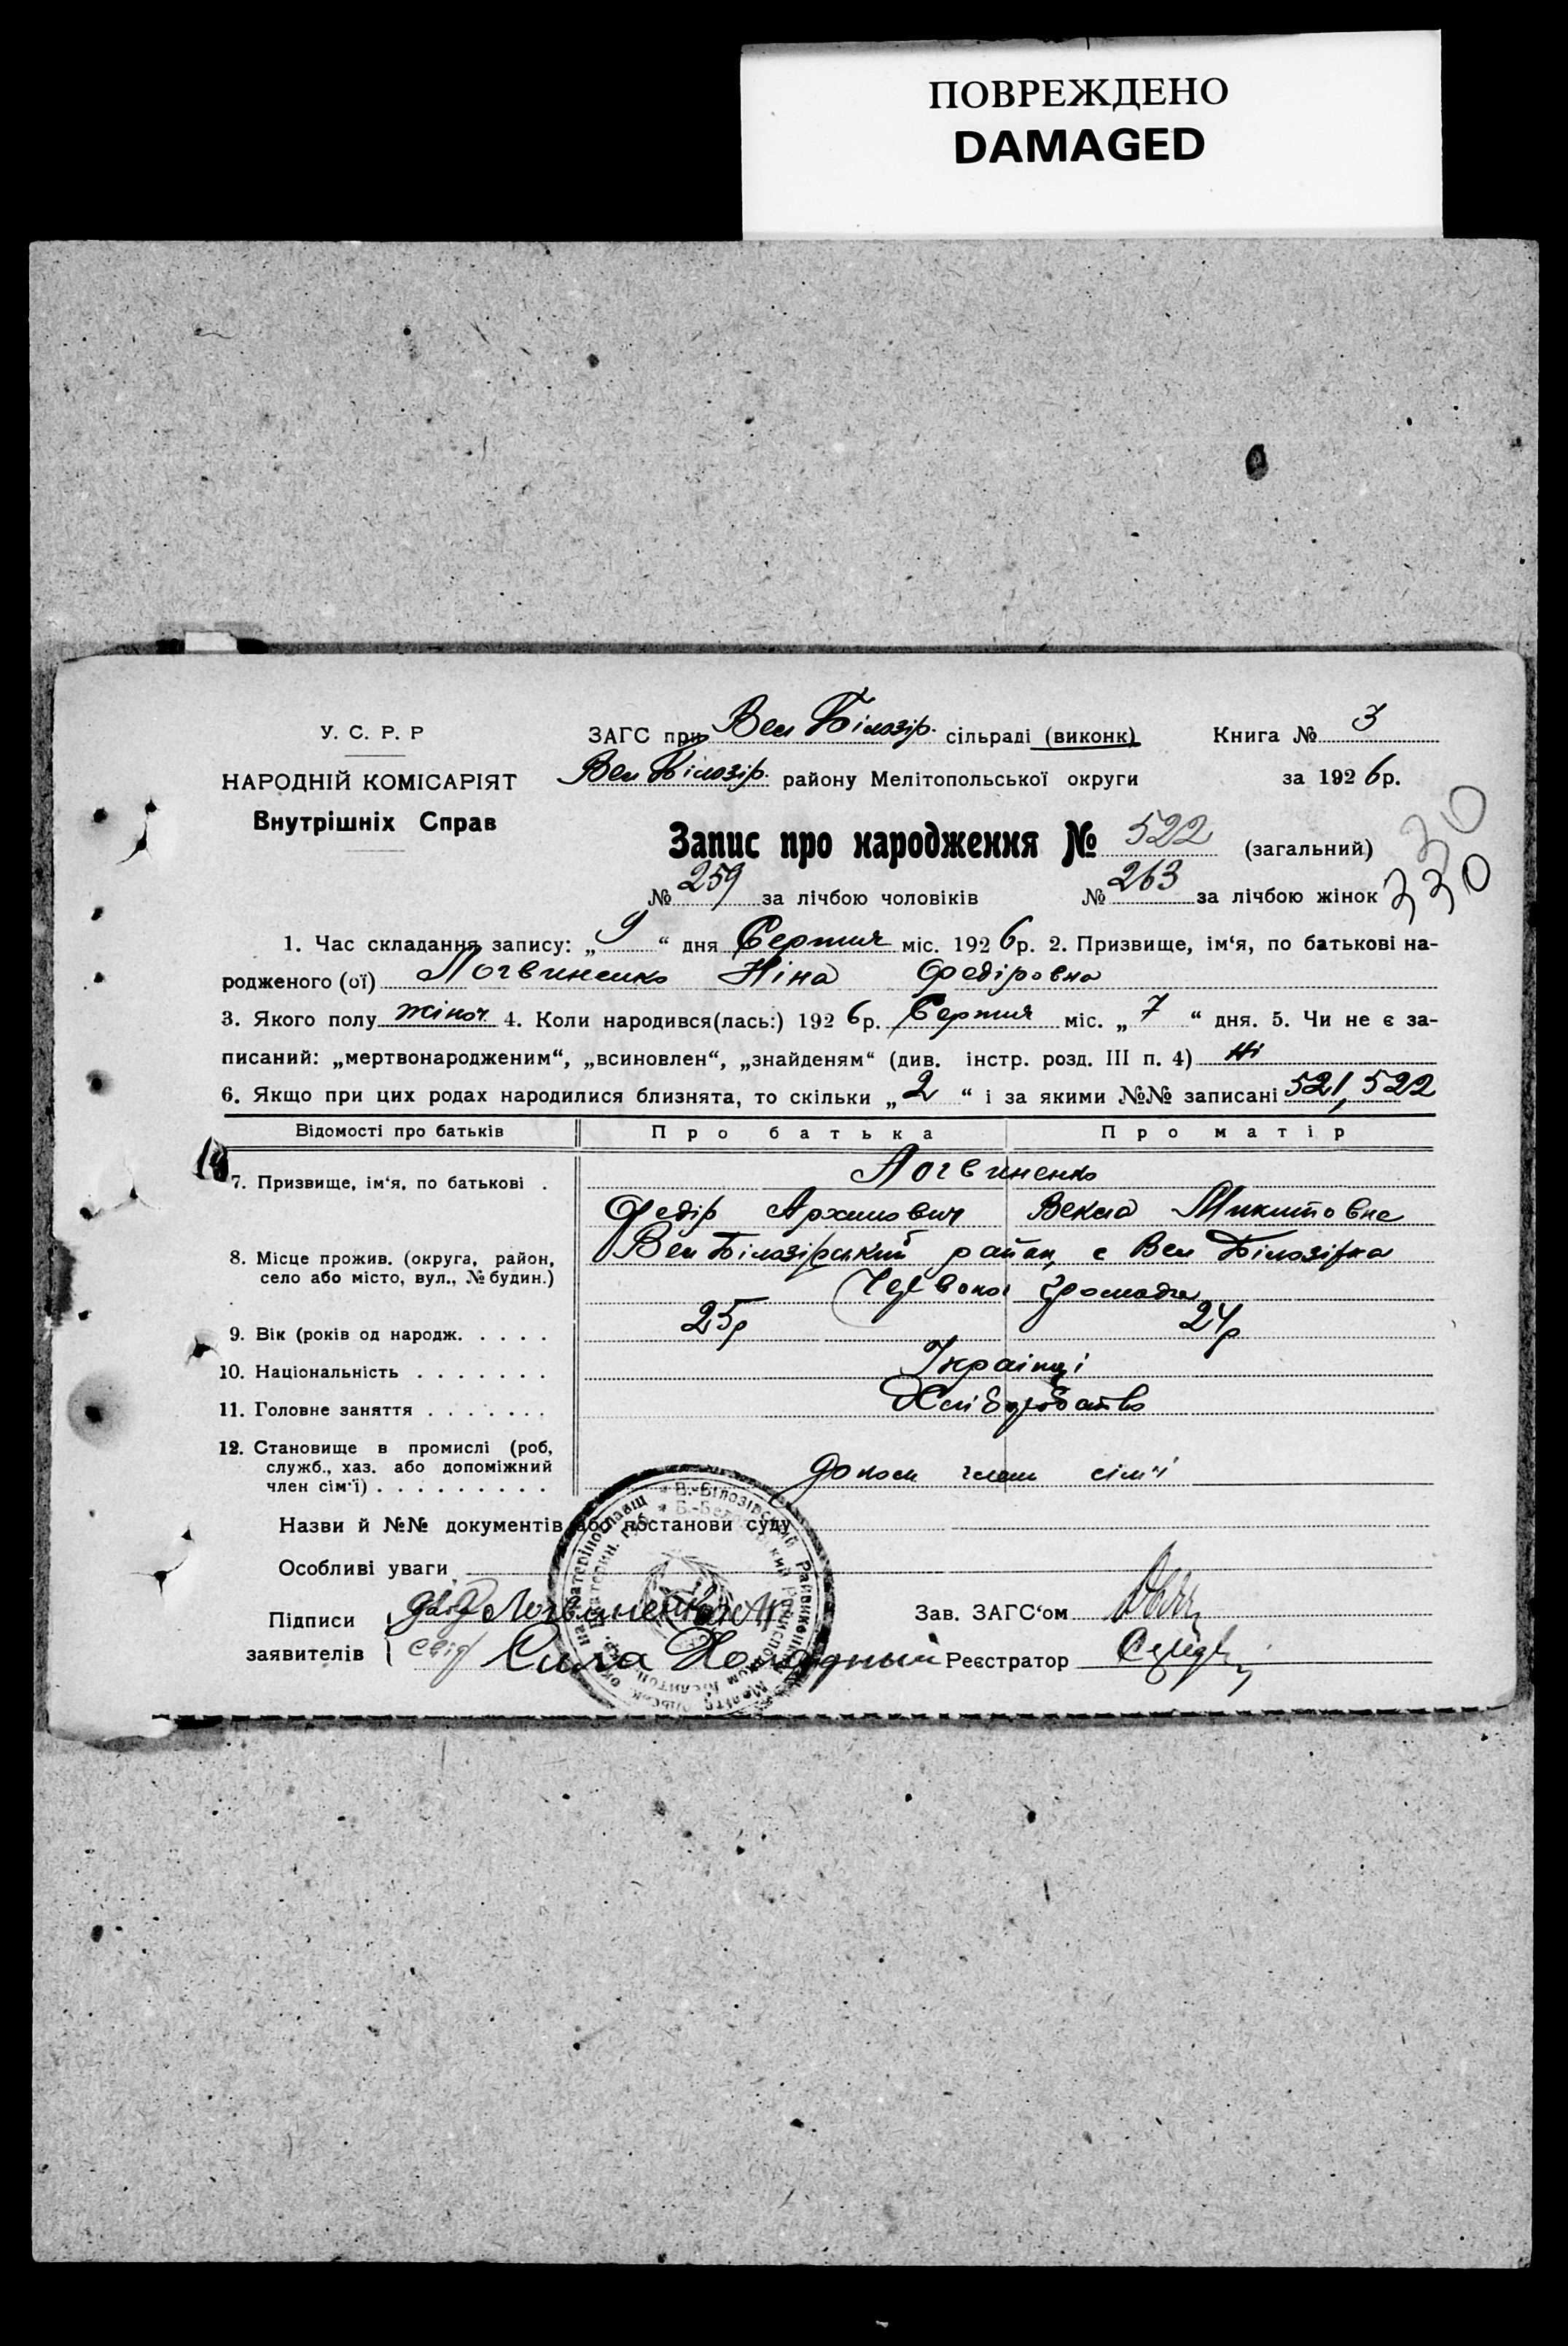 ПОВРЕЖДЕНО
DAMAGED
У. С. Р. Р
НАРОДНІЙ КОМІСАРІЯТ
Внутрішніх Справ
ЗАГС при Вел Білозір. сільраді (виконк)
Книга № 3
Вел Білозір. району Мелітопольської округи
за 1926р.
Запис про народження № 522 (загальний)
30
№ 259 за лічбою чоловіків № 263 за лічбою жінок
330
1. Час складання запису: „9“ дня Серпня міс. 1926р. 2. Призвище, ім‘я, по батькові на-
родженого (ої) Логвиненко Ніна Федіровна
3. Якого полу жіноч. 4. Коли народився(лась:) 1926р. Серпня міс. „7“ дня. 5. Чи не є за-
писаний: „мертвонародженим“, „всиновлен“, „знайденям“ (див. інстр. розд. III п. 4) ні
6. Якщо при цих родах народилися близнята, то скільки „2“ і за якими №№ записані 521, 522
Відомості про батьків Про батька Про матір
7. Призвище, ім‘я, по батькові . Логвиненко
Федір Архипович Векла Микитовна
8. Місце прожив. (округа, район,
село або місто, вул., № будин.)
Вел Білозірський район, с Вел Білозірка
Червона громада
9. Вік (років од народж. . . . . 25р 24р
10. Національність . . . . . . . Українці
11. Головне заняття . . . . . . . Хліборобство
12. Становище в промислі (роб,
служб., хаз. або допоміжний
член сім‘ї) . . . . . . . . .
член сім'ї
Назви й №№ документів або постанови суду
Особливі уваги
Підписи
заявителів
Логвиненко
свід
Сила
Зав. ЗАГС‘ом
Реєстратор